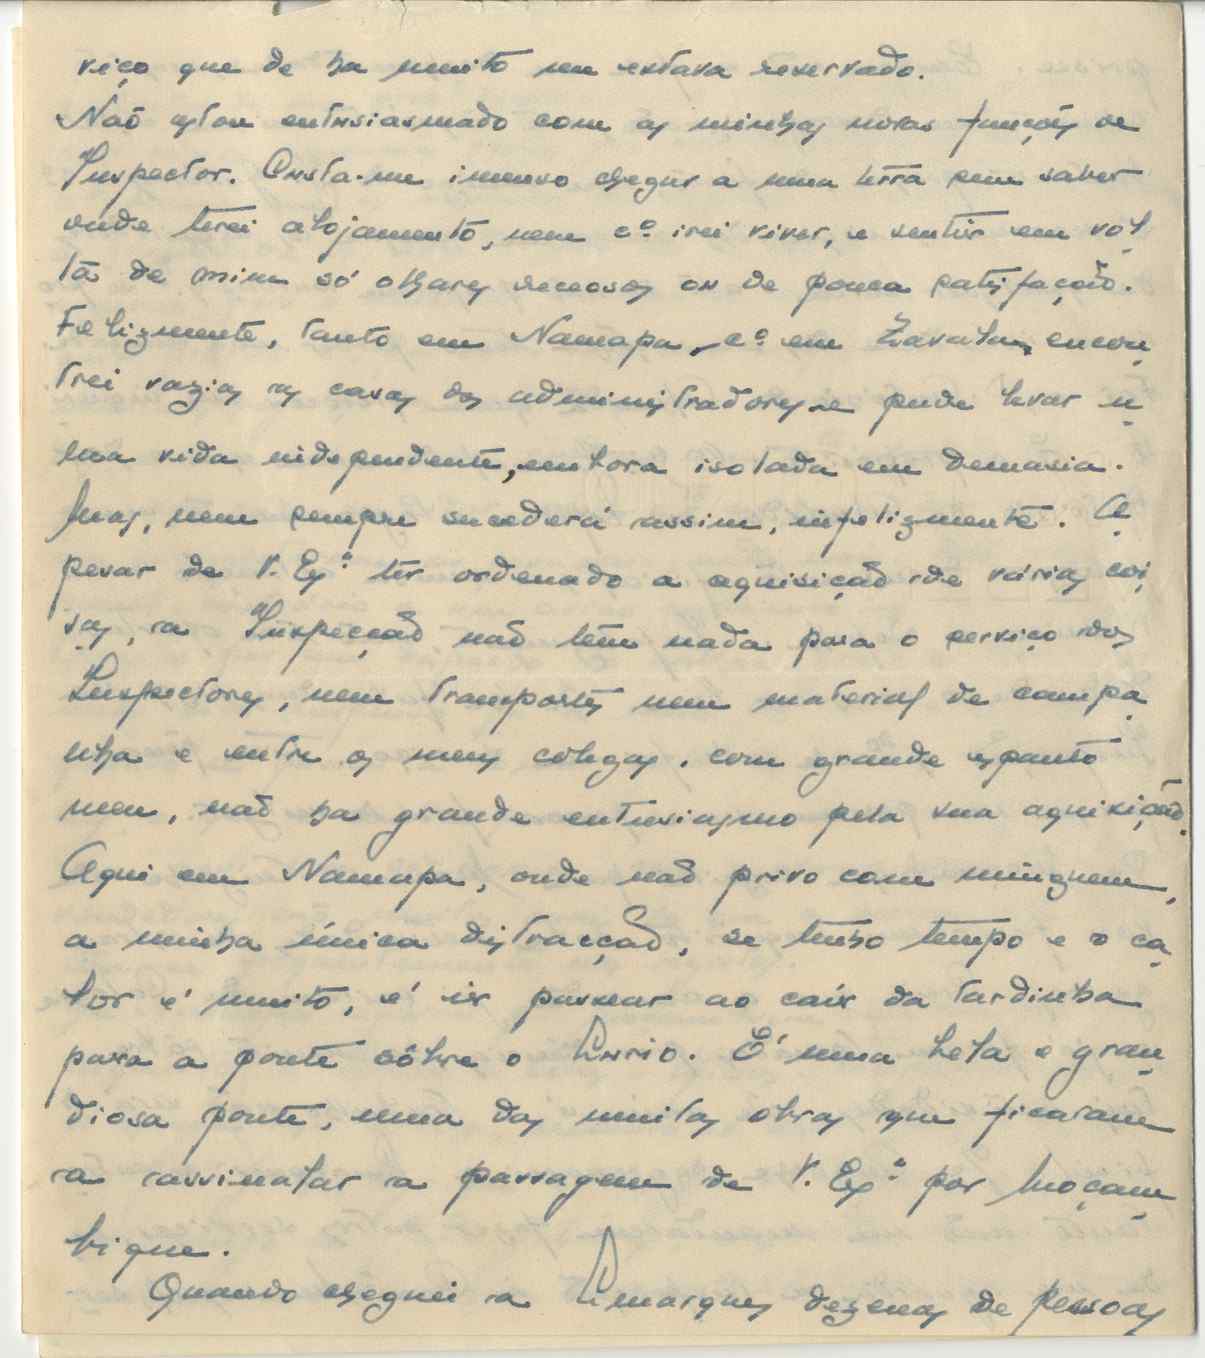 viço que de ha muito me estava reservado.
Não estou entusiasmado com as minhas novas funções de
Inspector. Custa-me imenso chegar a uma terra sem saber
onde terei alojamento, nem cº irei viver, e sentir em vol
ta de mim só olhares receosos ou de pouca satisfação.
Felizmente, tanto em Namapa, cº em Zavala, encon
trei vazias as casas dos administradores e pude levar u
ma vida independente, embora isolada em demasia.
Mas, nem sempre sucederá assim, infelizmente. A
pesar de V. Exª ter ordenado a aquisição de várias coi
sas, a Inspecção não têm nada para o serviço dos
Inspectores, nem transportes nem material de campa
nha e entre os meus colegas, com grande espanto
meu, não ha grande entusiasmo pela sua aquisição.
Aqui em Namapa, onde não privo com ninguem,
a minha única distracção, se tenho tempo e o ca
lor é muito, é ir passear ao cair da tardinha
para a ponte sôbre o Lúrio. É uma bela e gran
diosa ponte, uma das muitas obras que ficaram
a assinalar a passagem de V. Exª por Moçam
bique.
Quando cheguei a L. Marques dezenas de pessoas